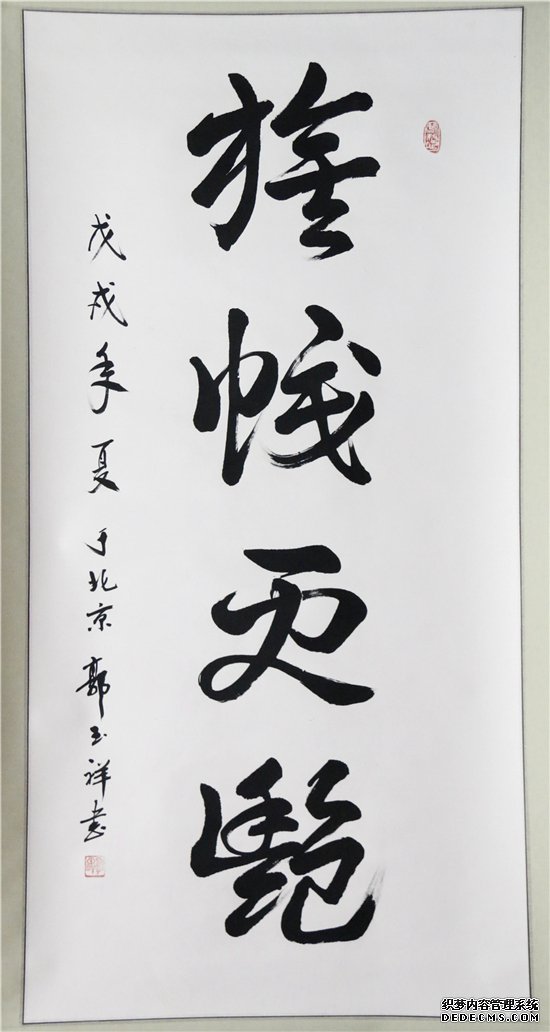 旗幟更艷
戊戌年夏于北京郭玉祥书
织梦内容管理系统
DEDECMS.COM